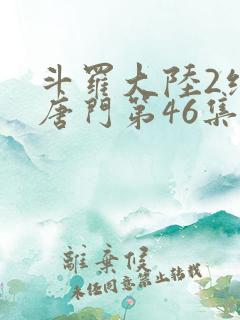 斗羅大陸2
唐門第46集
離棄候
未經同意禁止轉載